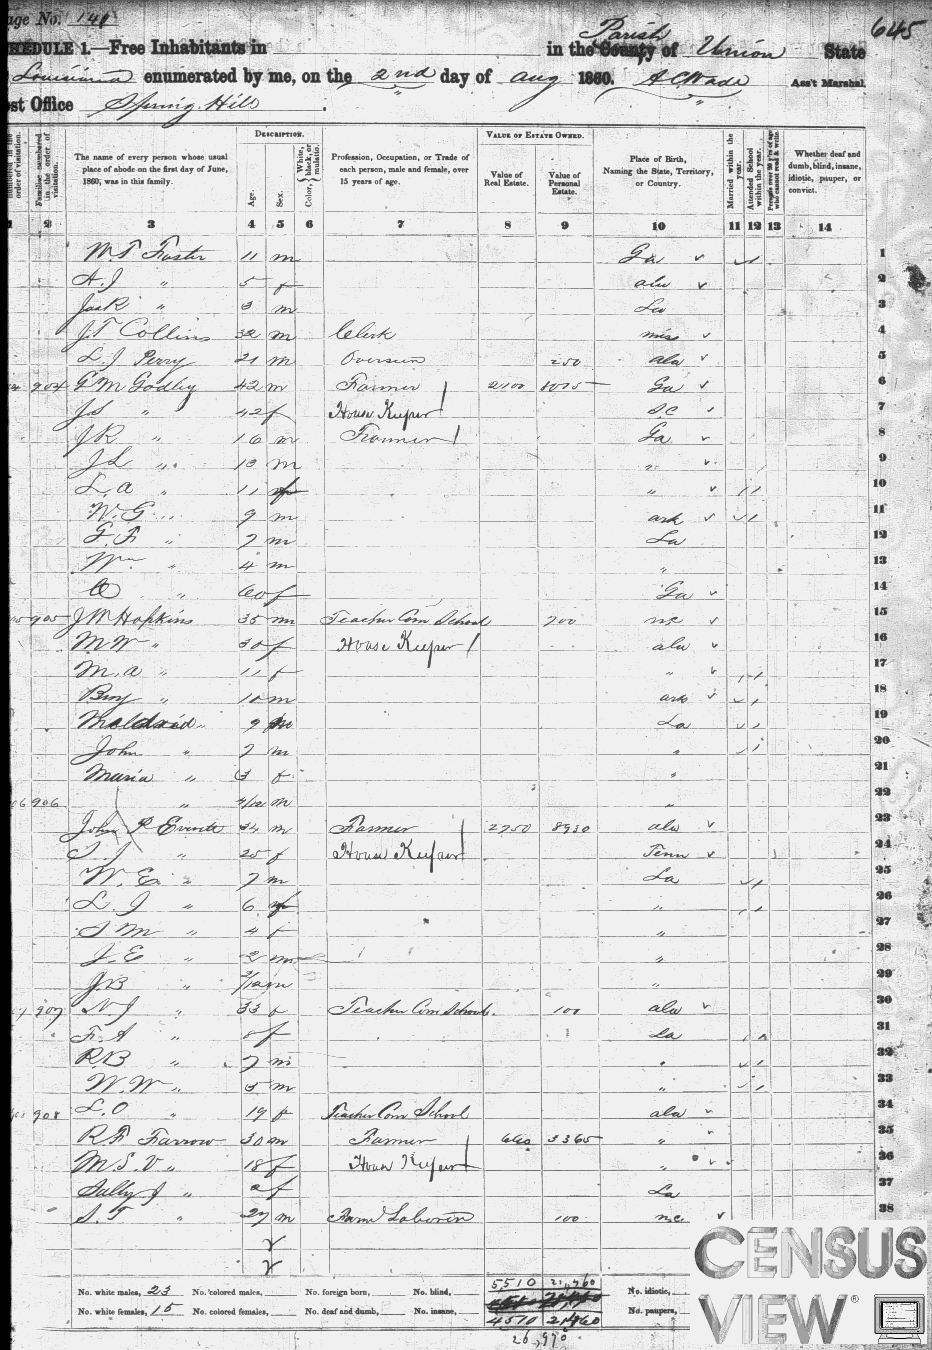 age No. 140
645
HEDULE 1.—Free Inhabitants in in the County Parish of Union State
Louisiana enumerated by me, on the 2nd day of aug 1860. A C Wade Ass't Marshal.
ost Office Spring Hill
DESCRIPTION. VALUE OF ESTATE OWNED.
The name of every person whose usual place of abode on the first day of June, 1860, was in this family.
Age. Sex. Color, White, black, or mulatto.
Profession, Occupation, or Trade of each person, male and female, over 15 years of age.
Value of Real Estate. Value of Personal Estate.
Place of Birth, Naming the State, Territory, or Country.
Married within the year. Attended School within the year. Persons over 20 y'rs of age who cannot read & write.
Whether deaf and dumb, blind, insane, idiotic, pauper, or convict.
1 2 3 4 5 6 7 8 9 10 11 12 13 14
W T Foster 11 m Ga 1
A. J " 5 f ala 2
Jack " 3 m La 3
J T Collins 32 m Clerk miss 4
L. J Perry 21 m 250 ala 5
904 G M Godley 42 m Farmer 2100 Ga 6
J S " 42 f House Keeper S C 7
J R " 16 m Farmer Ga 8
J L " 13 m " 9
L. a " 11 f " 10
W. G " 9 m ark 11
G. F. " 7 m La 12
Wm " 4 m " 13
" 60 f Ga 14
905 J W Hopkins 35 m Teacher Com School 700 15
M W " 30 f House Keeper ala 16
M. a " 11 f " 17
" 10 m ark 18
" 9 La 19
John " 7 m " 20
Maria " 3 f " 21
906 " 4/12 m " 22
John R 34 m Farmer 2750 8930 ala 23
" 25 f House Keeper Tenn 24
W. E. " 7 m La 25
L. J " 6 f " 26
S M " 4 f " 27
J. E " 2 m " 28
J. B " /12 m " 29
907 N J " 33 f Teacher Com School. 100 ala 30
F. A " 8 f La 31
R. B " 7 m " 32
W. W " 5 m " 33
908 L. O " 19 f Teacher Com School ala 34
R. F Farrow 30 m Farmer 660 3365 " 35
M. S. V " 18 f House Keeper " 36
Sally J " 2 f La 37
S. T " 27 m Farm Laborer 100 38
No. white males, 23 No. colored males, No. foreign born, No. blind, 5510 21,460 No. idiotic,
No. white females, 15 No. colored females, No. deaf and dumb, No. insane, 4510 No. paupers,
26,970
CENSUS
VIEW®